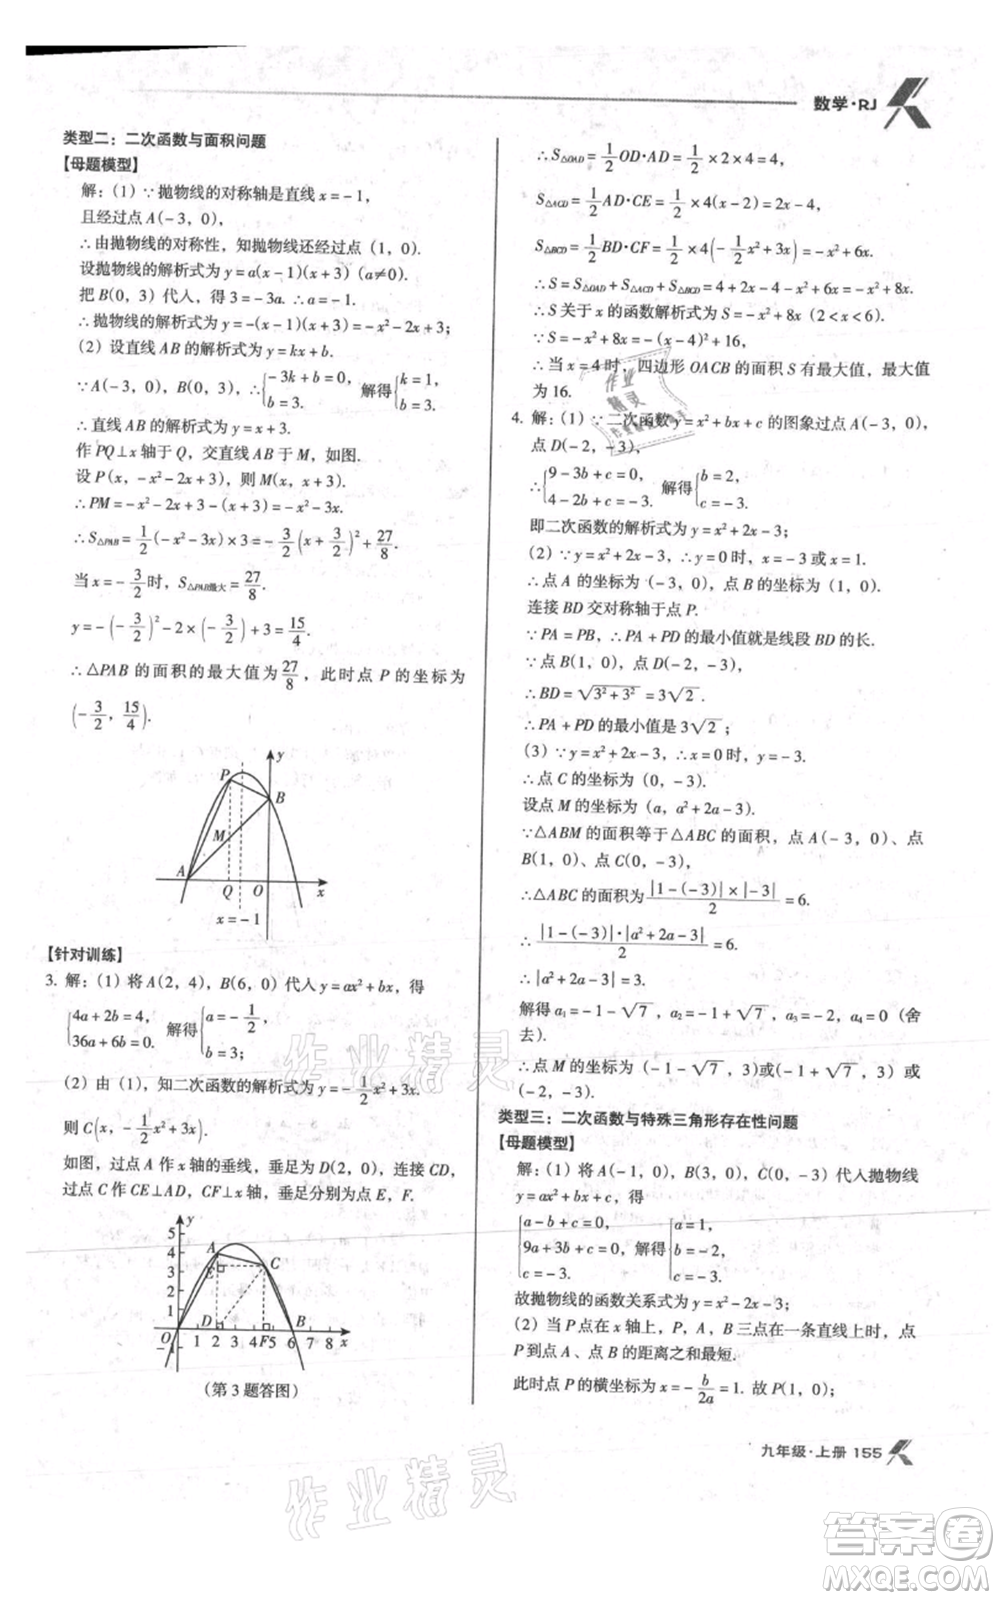 数学·RJ
类型二：二次函数与面积问题
【母题模型】
解：(1) ∵抛物线的对称轴是直线 x=-1，
且经过点 A(-3，0)，
∴由抛物线的对称性，知抛物线还经过点 (1，0).
设抛物线的解析式为 y=a(x-1)(x+3) (a≠0).
把 B(0，3) 代入，得 3=-3a. ∴a=-1.
∴抛物线的解析式为 y=-(x-1)(x+3)=-x²-2x+3；
(2) 设直线 AB 的解析式为 y=kx+b.
∵A(-3，0)，B(0，3)，∴{-3k+b=0, b=3. 解得{k=1, b=3.
∴直线 AB 的解析式为 y=x+3.
作 PQ⊥x 轴于 Q，交直线 AB 于 M.
设 P(x，-x²-2x+3)，则 M(x，x+3).
∴PM=-x²-2x+3-(x+3)=-x²-3x.
∴S△PAB=1/2(-x²-3x)×3=-3/2(x+3/2)²+27/8.
当 x=-3/2 时，S△PAB最大=27/8，
y=-(-3/2)²-2×(-3/2)+3=15/4.
∴△PAB 的面积的最大值为27/8，此时点 P 的坐标为
(-3/2，15/4).
y
P
B
M
A
Q O x
x=-1
【针对训练】
3. 解：(1) 将 A(2，4)，B(6，0) 代入 y=ax²+bx，得
{4a+2b=4, 36a+6b=0. 解得{a=-1/2, b=3；
(2) 由 (1)，知二次函数的解析式为 y=-1/2x²+3x.
则 C(x，-1/2x²+3x).
如图，过点 A 作 x 轴的垂线，垂足为 D(2，0)，连接 CD，
过点 C 作 CE⊥AD，CF⊥x 轴，垂足分别为点 E，F.
y
5
4
3
2
1
-1
A
E
C
D
B
O 1 2 3 4 F 5 6 7 8 x
(第 3 题答图)
∴S△OAD=1/2OD·AD=1/2×2×4=4，
S△ACD=1/2AD·CE=1/2×4(x-2)=2x-4，
S△BCD=1/2BD·CF=1/2×4(-1/2x²+3x)=-x²+6x.
∴S=S△OAD+S△ACD+S△BCD=4+2x-4-x²+6x=-x²+8x.
∴S 关于 x 的函数解析式为 S=-x²+8x (2<x<6).
∵S=-x²+8x=-(x-4)²+16，
∴当 x=4 时，四边形 OACB 的面积 S 有最大值，最大值
为 16.
4. 解：(1) ∵二次函数 y=x²+bx+c 的图象过点 A(-3，0)，
点 D(-2，-3)，
∴{9-3b+c=0, 4-2b+c=-3. 解得{b=2, c=-3.
即二次函数的解析式为 y=x²+2x-3；
(2) ∵y=x²+2x-3，∴y=0 时，x=-3 或 x=1.
∴点 A 的坐标为 (-3，0)，点 B 的坐标为 (1，0).
连接 BD 交对称轴于点 P.
∵PA=PB，∴PA+PD 的最小值就是线段 BD 的长.
∵点 B(1，0)，点 D(-2，-3)，
∴BD=√(3²+3²)=3√2.
∴PA+PD 的最小值是 3√2；
(3) ∵y=x²+2x-3，∴x=0 时，y=-3.
∴点 C 的坐标为 (0，-3).
设点 M 的坐标为 (a，a²+2a-3).
∵△ABM 的面积等于△ABC 的面积，点 A(-3，0)，点
B(1，0)，点 C(0，-3)，
∴△ABC 的面积为|1-(-3)|×|-3|/2=6.
∴|1-(-3)|·|a²+2a-3|/2=6.
∴|a²+2a-3|=3.
解得 a₁=-1-√7，a₂=-1+√7，a₃=-2，a₄=0 (舍
去).
∴点 M 的坐标为 (-1-√7，3)，(-1+√7，3) 或
(-2，-3).
类型三：二次函数与特殊三角形存在性问题
【母题模型】
解：(1) 将 A(-1，0)，B(3，0)，C(0，-3) 代入抛物线
y=ax²+bx+c，得
{a-b+c=0, 9a+3b+c=0, c=-3. 解得{a=1, b=-2, c=-3.
故抛物线的函数关系式为 y=x²-2x-3；
(2) 当 P 点在 x 轴上，P，A，B 三点在一条直线上时，点
P 到点 A、点 B 的距离之和最短.
此时点 P 的横坐标为 x=-b/2a=1. 故 P(1，0)；
九年级·上册 155
作业精灵
作业精灵
作业精灵
答案卷
MXQE.COM